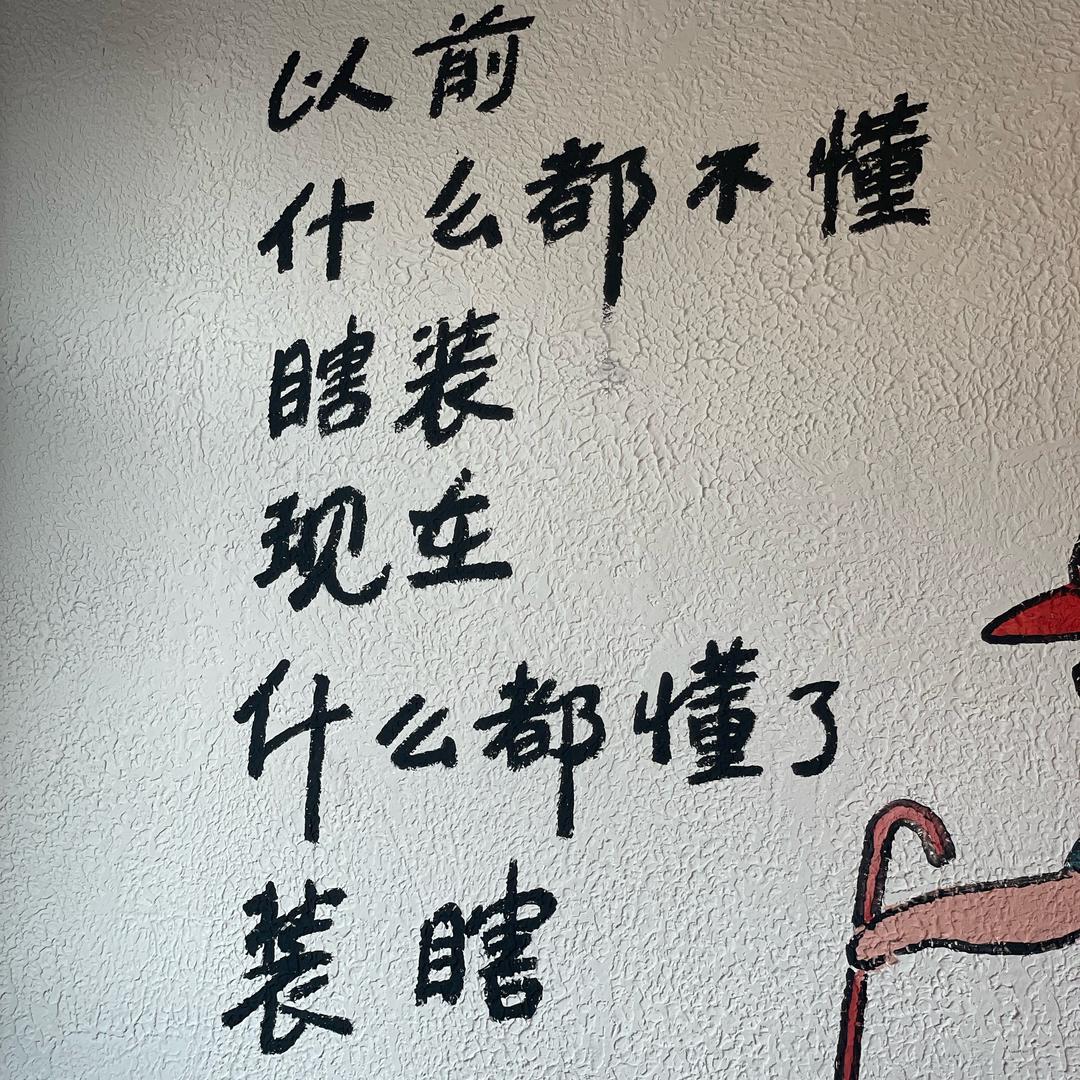 以前
什么都不懂
瞎装
现在
什么都懂了
装瞎